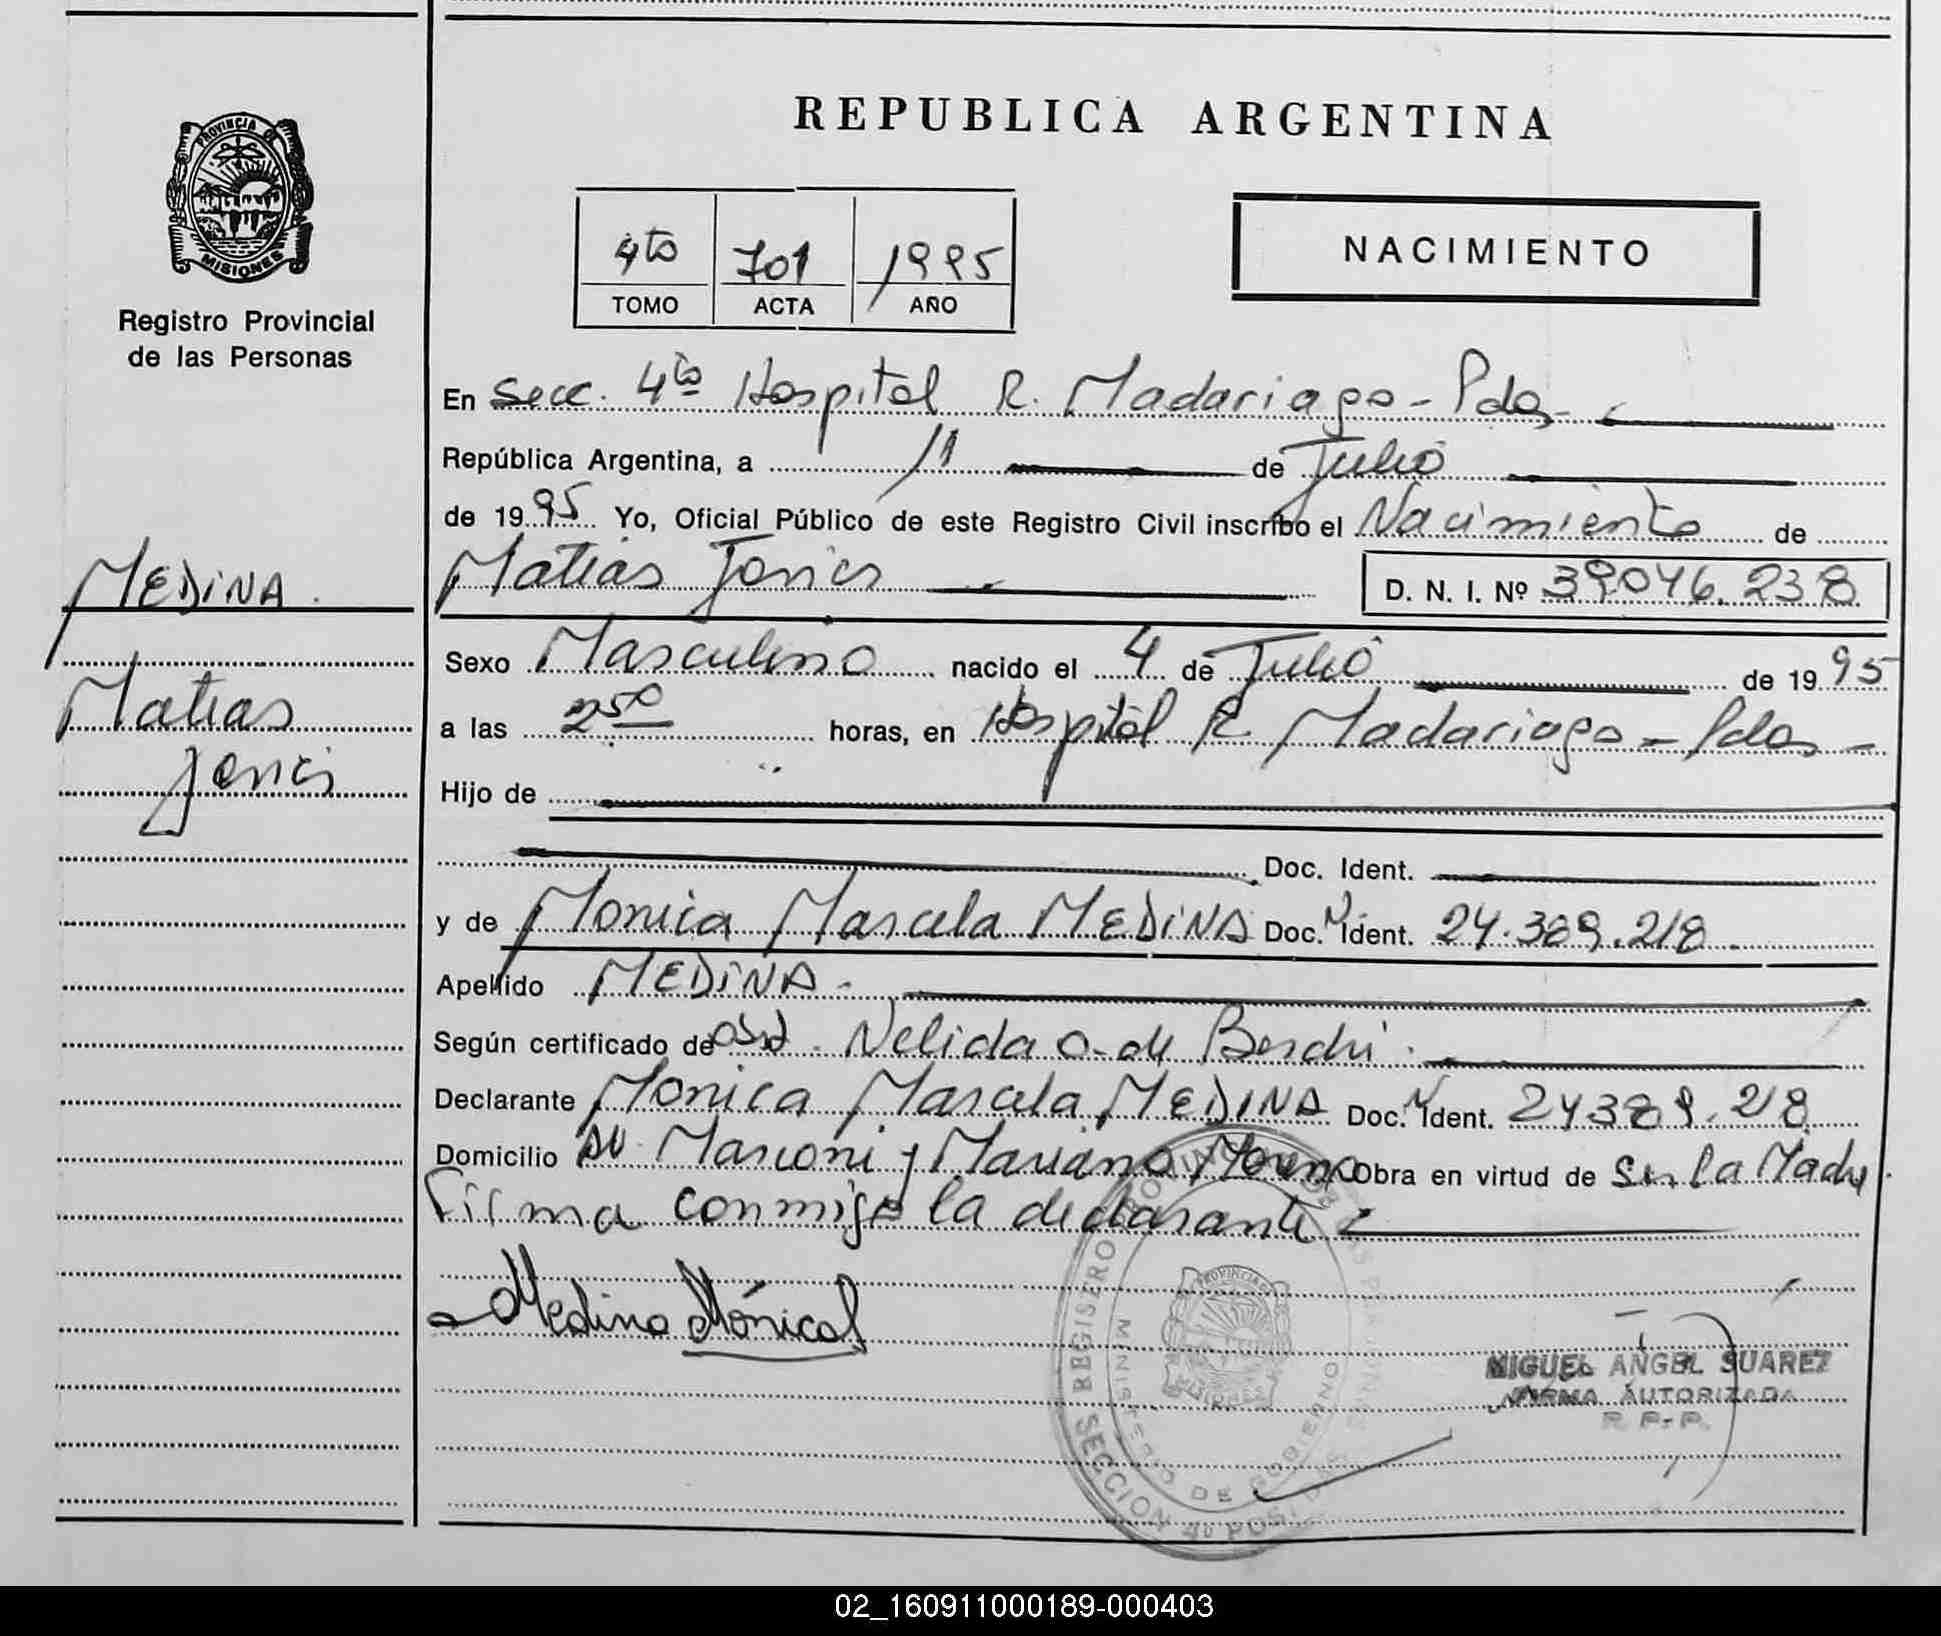 REPUBLICA ARGENTINA
PROVINCIA DE
MISIONES
Registro Provincial
de las Personas
4to 701 1995
TOMO ACTA AÑO
NACIMIENTO
En Secc. 4ta Hospital R. Madariaga - Pdas -
República Argentina, a 11 de Julio
de 1995 Yo, Oficial Público de este Registro Civil inscribo el Nacimiento de
Matias Javier D. N. I. Nº 39046.238
MEDINA.
Matias
Javier
Sexo Masculino nacido el 4 de Julio de 1995
a las 2 50 horas, en Hospital R. Madariaga - Pdas -
Hijo de
Doc. Ident.
y de Monica Marcela MEDINA Doc. Ident. 24.389.218
Apellido MEDINA -
Según certificado de Obst. Nelida O. de
Declarante Monica Marcela MEDINA Doc. Ident. 24389.218
Domicilio Av. Marconi y Mariano Moreno Obra en virtud de Ser la Madre.
Firma conmigo la declarante
Medina Mónica
MIGUEL ANGEL SUAREZ
FIRMA AUTORIZADA
R. P. P.
PROVINCIA DE
MISIONES
MINISTERIO DE GOBIERNO
SECCION 4º POSADAS
02_160911000189-000403